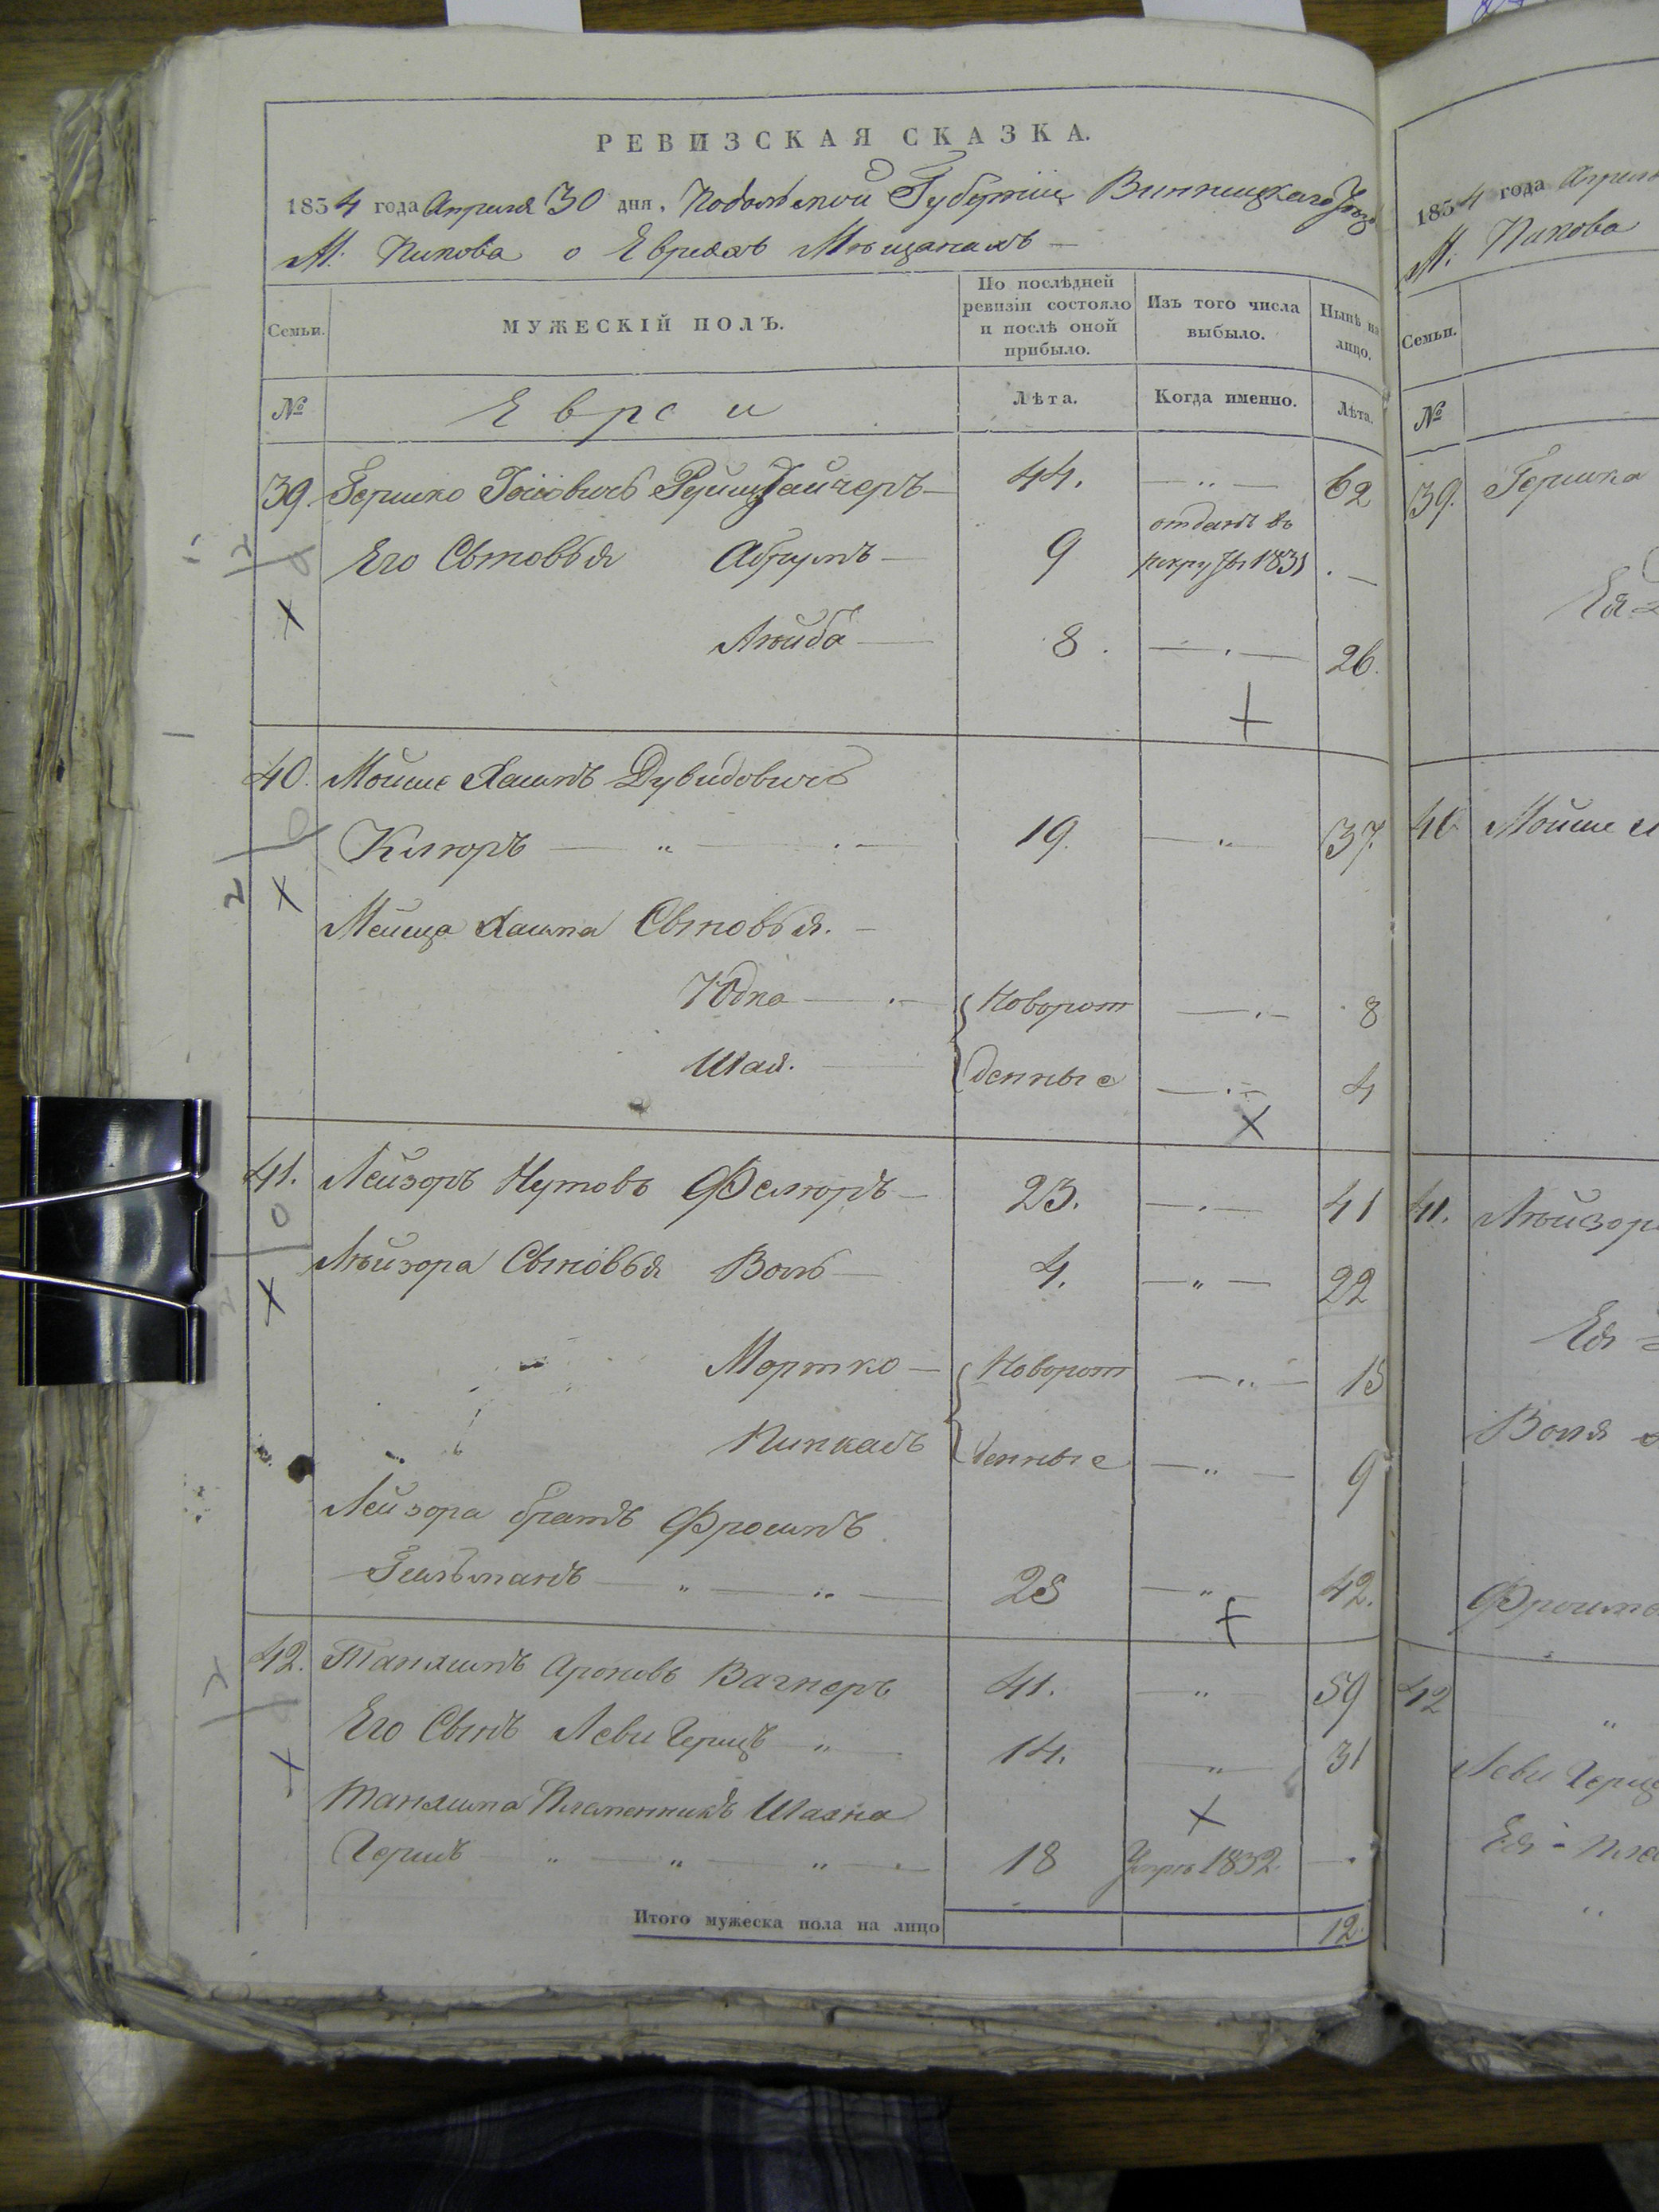 РЕВИЗСКАЯ СКАЗКА.
1854 года Апреля 30 дня, Подольской Губерніи Винницкаго Уѣзда
М. Пикова о Евреяхъ Мѣщанахъ —
Семьи. МУЖЕСКІЙ ПОЛЪ. По послѣдней ревизіи состояло и послѣ оной прибыло. Изъ того числа выбыло. Нынѣ на лицо.
№ Евреи Лѣта. Когда именно. Лѣта.
39. Гершко 44. — " — 62
Его Сыновья Абрумъ — 9 отданъ въ рекруты 1831 . —
Лейба — 8. — . — 26.
40. Мойше Хаимъ Дувидовичъ
Клюръ — " — . — 19. — " — 37.
Мейша Хаима Сыновья. —
Юдка — . — Новорож — . — 8
Шая. — денные — . — 4
41. Лейзоръ Нутовъ Фелюръ — 23. — . — 41
Лѣйзора Сыновья Воль — 4. — " — 22
Мортко — Новорож — " — 15
Пинкасъ денные — " — 9
Лейзора братъ Фроимъ
Гельманъ — " — " — 25 — " — 42.
42. Танхимъ Ароновъ Вагнеръ 41. " 59
Его Сынъ Леви Герицъ " — 14. — " — 31
Танхима Племенникъ Шахна
Гершъ — " — " — " — . 18 Умре 1832. — .
Итого мужеска пола на лицо 12
1854 года Апреля
М. Пикова
Семьи.
№
39. Гершка
Ея
40 Мойше
41. Лѣйзора
Ея
Воля
Фроима
42 "
Леви Гериц
Ея -